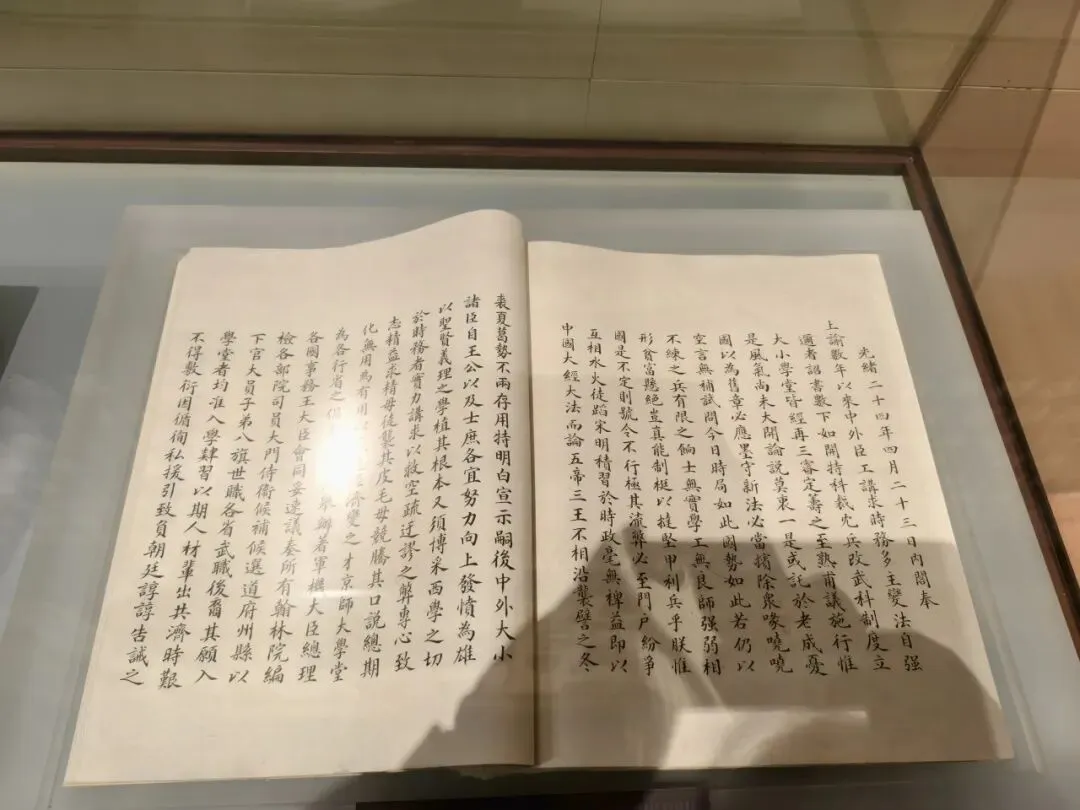 光緒二十四年四月二十三日內閣奉
上諭數年以來中外臣工講求時務多主變法自强
邇者詔書數下如開特科裁冗兵改武科制度立
大小學堂皆經再三審定籌之至熟甫議施行惟
是風氣尚未大開論說莫衷一是或託於老成憂
國以為舊章必應墨守新法必當擯除衆喙嘵嘵
空言無補試問今日時局如此國勢如此若仍以
不練之兵有限之餉士無實學工無良師强弱相
形貧富懸絕豈真能制梃以撻堅甲利兵乎朕惟
國是不定則號令不行極其流弊必至門戶紛爭
互相水火徒蹈宋明積習於時政毫無裨益即以
中國大經大法而論五帝三王不相沿襲譬之冬
裘夏葛勢不兩存用特明白宣示嗣後中外大小
諸臣自王公以及士庶各宜努力向上發憤為雄
以聖賢義理之學植其根本又須博采西學之切
於時務者實力講求以救空疏迂謬之弊專心致
志精益求精毋徒襲其皮毛毋競騰其口說總期
化無用為有用以濟變之才京師大學堂
為各行省之倡舉辦著軍機大臣總理
各國事務王大臣會同妥速議奏所有翰林院編
檢各部院司員大門侍衛候補候選道府州縣以
下官大員子弟八旗世職各省武職後裔其願入
學堂者均准入學肄習以期人材輩出共濟時艱
不得敷衍因循徇私援引致負朝廷諄諄告誡之